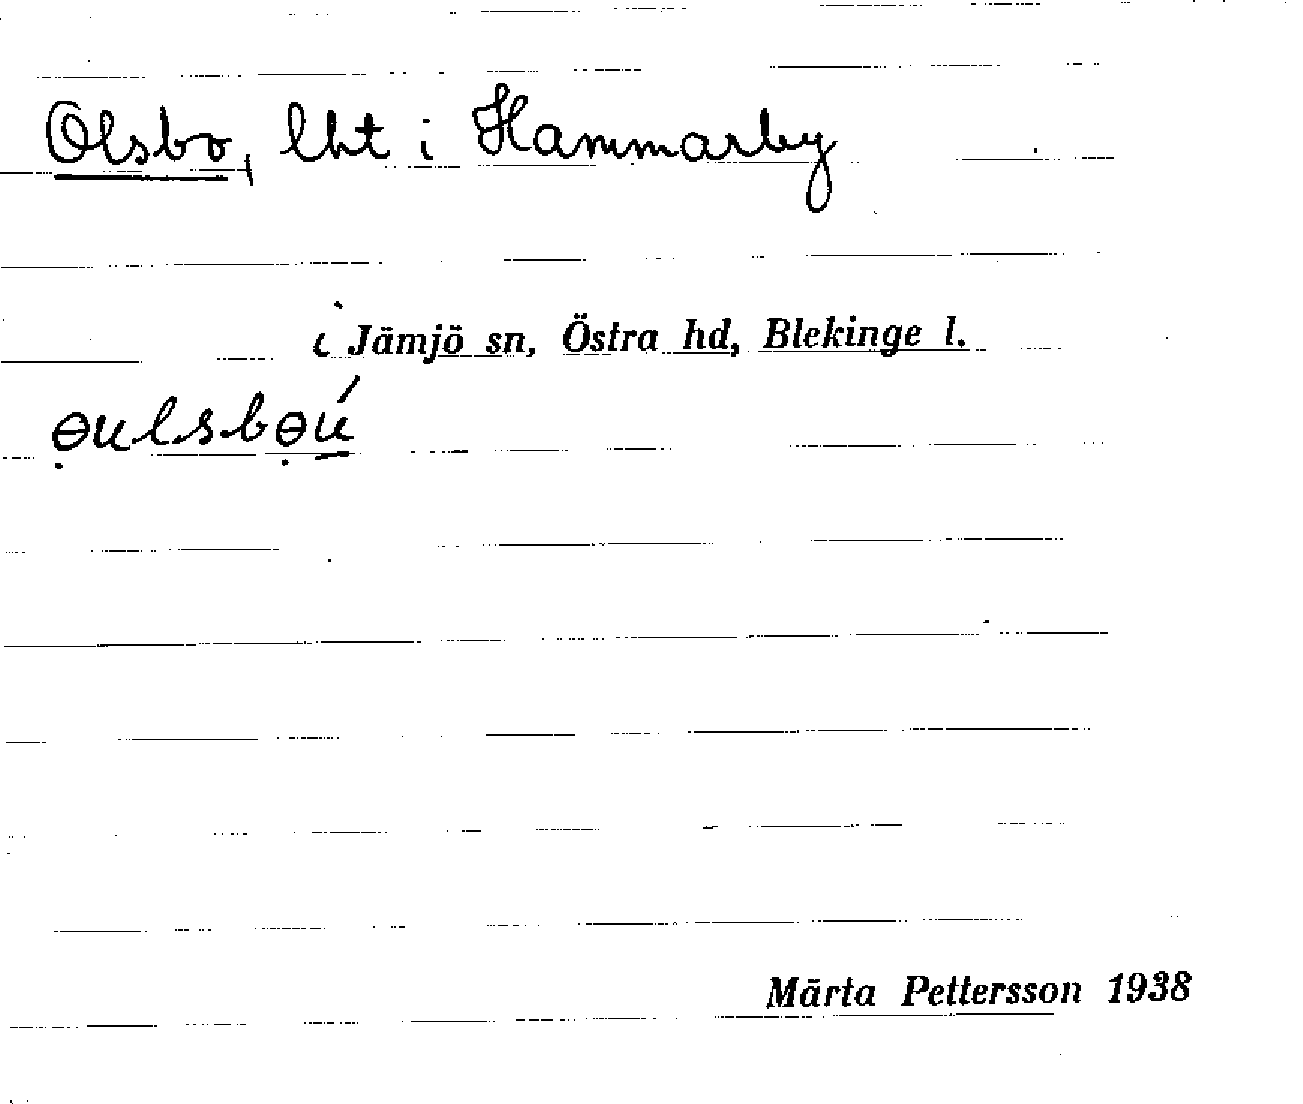 Olsbo, lht i Hammarby
i Jämjö sn, Östra hd, Blekinge l.
ɵ̣ulsbɵ̣ú
Märta Pettersson 1938